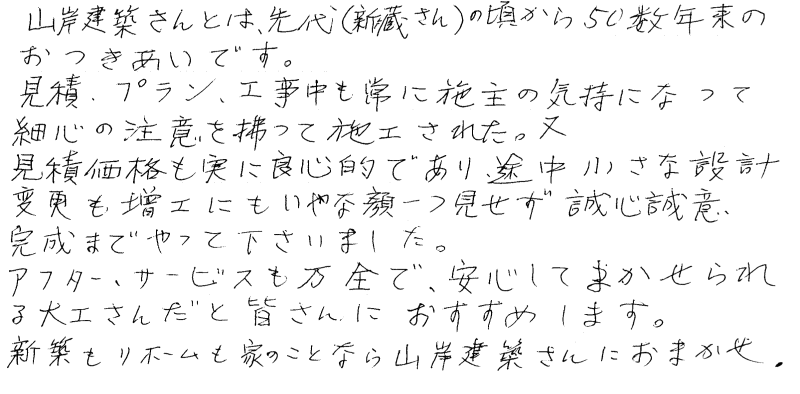 山岸建築さんとは、先代(新蔵さん)の頃から50数年来の
おつきあいです。
見積、プラン、工事中も常に施主の気持になって
細心の注意を拂って施工された。又
見積価格も実に良心的であり、途中小さな設計
変更も増工にもいやな顔一つ見せず誠心誠意、
完成までやって下さいました。
アフター、サービスも万全で、安心してまかせられ
る大工さんだと皆さんにおすすめします。
新築もリホームも家のことなら山岸建築さんにおまかせ.